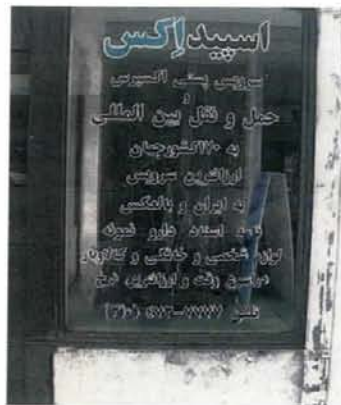 اسپیداِکس
سرویس پستی اکسپرس
و
حمل و نقل بین المللی
به ۱۷۰کشورجهان
ارزانترین سرویس
به ایران و بالعکس
اسناد دارو نمونه
لوازم شخصی و خانگی و
وقت و ارزانترین نرخ
تلفن